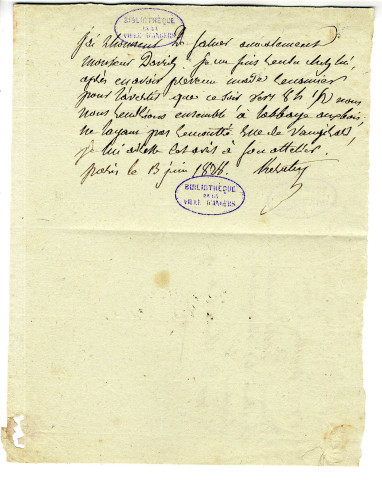 j'ai l'honneur de saluer amicalement
BIBLIOTHÈQUE
DE LA
VILLE D'ANGERS
Monsieur David, je me suis rendu chez lui,
après en avoir prévenu made
pour l'avertir que ce soir vers 8h 1/2 nous
nous rendrions ensemble à l'abbaye aux bois,
ne l'ayant pas rencontré rue de Vaugirard,
je lui adresse cet avis à son attelier.
paris le 13 juin 1826. Kératry
BIBLIOTHÈQUE
DE LA
VILLE D'ANGERS